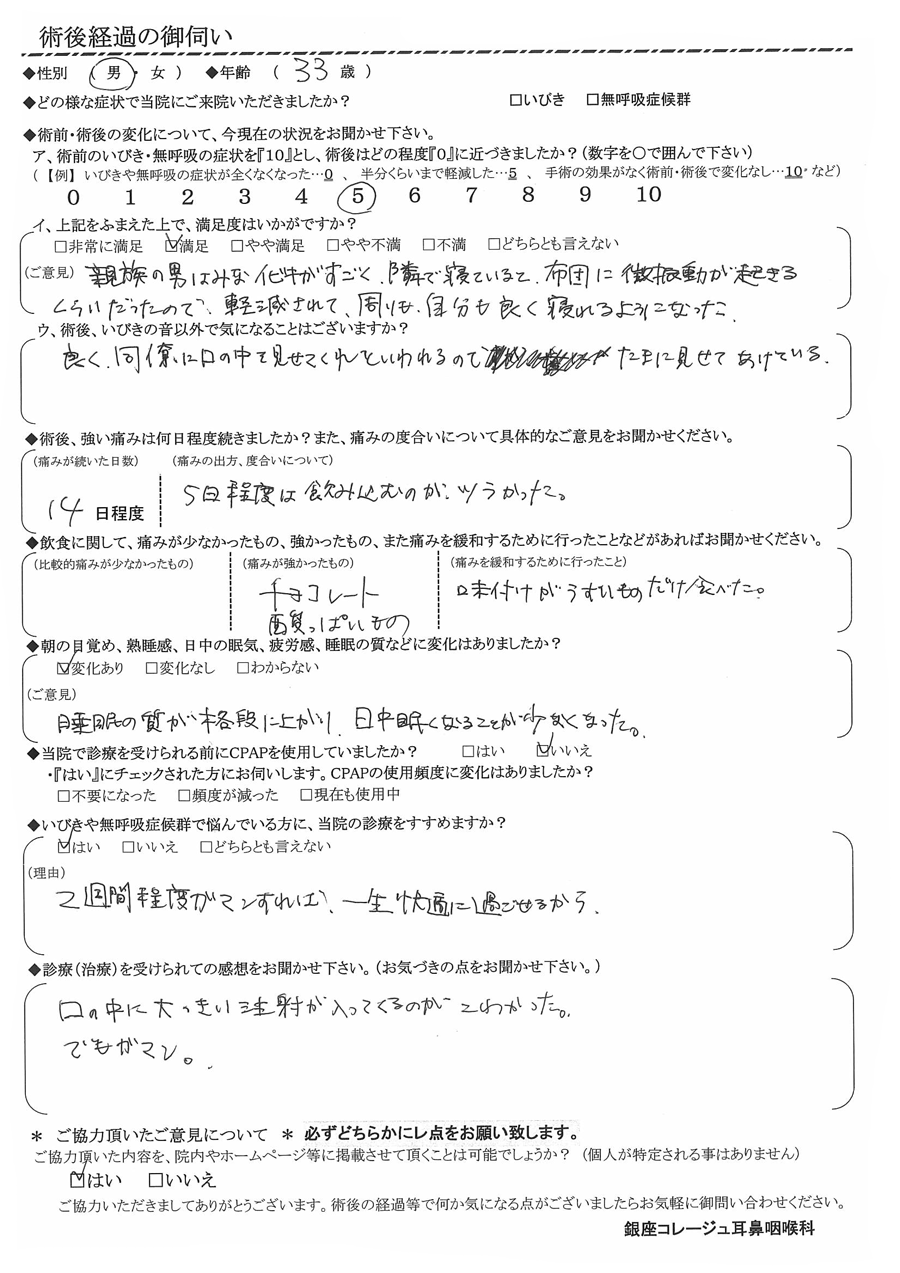 術後経過の御伺い
◆性別 ( 男 ・ 女 ) ◆年齢 ( 33 歳 )
◆どの様な症状で当院にご来院いただきましたか? □いびき □無呼吸症候群
◆術前・術後の変化について、今現在の状況をお聞かせ下さい。
ア、術前のいびき・無呼吸の症状を『10』とし、術後はどの程度『0』に近づきましたか?(数字を○で囲んで下さい)
(【例】 いびきや無呼吸の症状が全くなくなった…0 、 半分くらいまで軽減した…5 、 手術の効果がなく術前・術後で変化なし…10・など)
0 1 2 3 4 5 6 7 8 9 10
イ、上記をふまえた上で、満足度はいかがですか?
□非常に満足 ☑満足 □やや満足 □やや不満 □不満 □どちらとも言えない
(ご意見) 親族の男はみなイビキがすごく、隣で寝ていると、布団に微振動が起きる
くらいだったので、軽減されて、周りも、自分も良く寝れるようになった。
ウ、術後、いびきの音以外で気になることはございますか?
良く、同僚に口の中を見せてくれといわれるので たまに見せてあげている.
◆術後、強い痛みは何日程度続きましたか?また、痛みの度合いについて具体的なご意見をお聞かせください。
(痛みが続いた日数) (痛みの出方、度合いについて)
14 日程度 5日程度は飲み込むのが、ツラかった。
◆飲食に関して、痛みが少なかったもの、強かったもの、また痛みを緩和するために行ったことなどがあればお聞かせください。
(比較的痛みが少なかったもの) (痛みが強かったもの) (痛みを緩和するために行ったこと)
チョコレート 味付けがうすいものだけ食べた。
酸っぱいもの
◆朝の目覚め、熟睡感、日中の眠気、疲労感、睡眠の質などに変化はありましたか?
☑変化あり □変化なし □わからない
(ご意見)
睡眠の質が格段に上がり、日中眠くなることが少なくなった。
◆当院で診療を受けられる前にCPAPを使用していましたか? □はい ☑いいえ
・『はい』にチェックされた方にお伺いします。CPAPの使用頻度に変化はありましたか?
□不要になった □頻度が減った □現在も使用中
◆いびきや無呼吸症候群で悩んでいる方に、当院の診療をすすめますか?
☑はい □いいえ □どちらとも言えない
(理由)
2週間程度ガマンすれば、一生快適に過ごせるから.
◆診療(治療)を受けられての感想をお聞かせ下さい。(お気づきの点をお聞かせ下さい。)
口の中に大っきい注射が入ってくるのがこわかった。
でもガマン。
* ご協力頂いたご意見について * 必ずどちらかにレ点をお願い致します。
ご協力頂いた内容を、院内やホームページ等に掲載させて頂くことは可能でしょうか? (個人が特定される事はありません)
☑はい □いいえ
ご協力いただきましてありがとうございます。術後の経過等で何か気になる点がございましたらお気軽に御問い合わせください。
銀座コレージュ耳鼻咽喉科